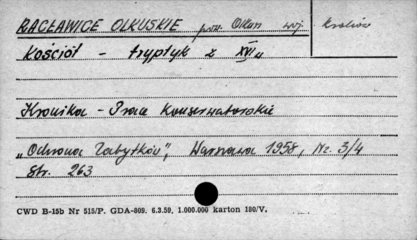 RACŁAWICE OLKUSKIE pow. Olkusz woj. Kraków
Kościół - tryptyk z XVI w
Kronika - Prace Konserwatorskie
„Ochrona Zabytków”, Warszawa 1958, Nr. 3/4
Str. 263
CWD B-15b Nr 515/P. GDA-809. 6.3.59. 1.000.000 karton 180/V.